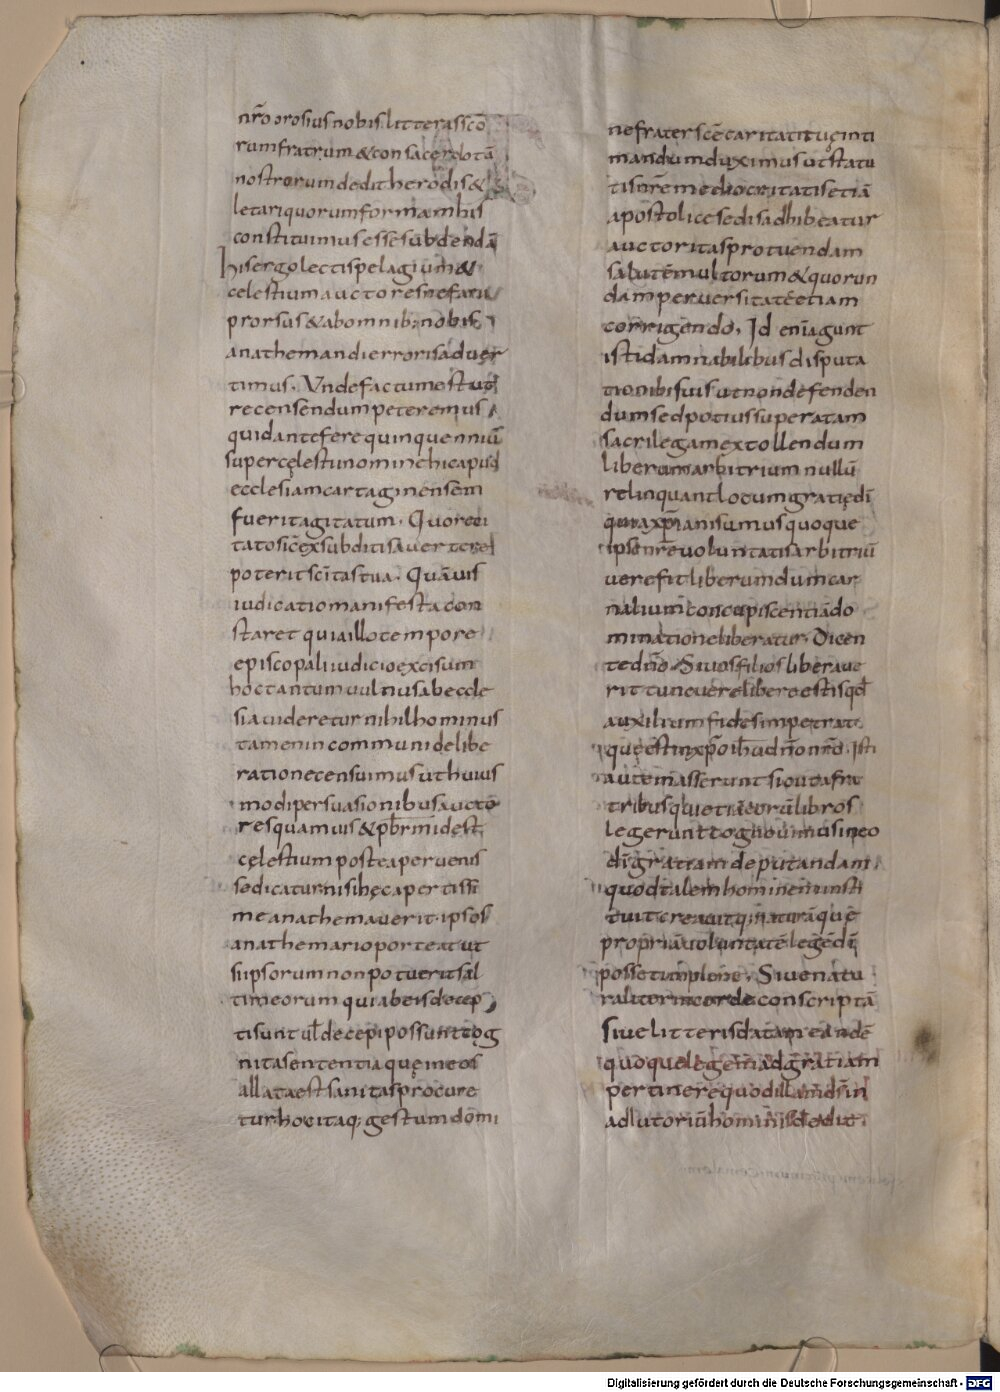 nr̃o orosius nobis litteras scõ
rum fratrum & consacerdotũ
nostrorum dedit herodis &
letari quorum formam his
constituimus esse subdendã
hIs ergo lectis pelagium &
celestium auctores nefarii
prorsus & ab omnib; nobis
anathemandi erroris adver
timus. Unde factum est ut
recensendum peteremus
quid ante fere quinquenniũ
super cęlestii nomin& hic apud
ecclesiam cartaginensem
fuerit agitatum. Quo reci
tato sic̃ ex subditis advertere
poterit sc̃itas tua. Quãvis
iudicatio manifesta con
staret qui a illo tempore
episcopali iudicio excisum
hoc tantum vulnus ab eccle
sia videretur nihil hominus
tamen in communi delibe
ratione censuimus ut huius
modi persuasionibus aucto
res quamuis & p̃brm̃ idest
cęlestium postea pervenis
se dicatur nisi hęc apertissi
me anathemaverit. ipsos
anathemari oporteat ut
si ipsorum non potuerit sal
tim eorum qui ab eis decep
ti sunt ul̃ decepi possunt cog
nita sententia quę in eos
allata est sanitas procure
tur hoc itaq; gestum domi
ne frater sc̃e caritati tuę inti
mandum duximus ut statu
tis nr̃e mediocritatis etiã
apostolice sedis adhibeatur
auctoritas pro tuendam
salutẽ multorum & quorun
dam perversitatẽ etiam
corrigendo, Id enĩ agunt
isti damnabilibus disputa
tionibus suis ut non defenden
dum sed potius superatam
sacrilegam extollendum
liberum arbitrium nullũ
relinquant locum gratię dĩ
qua xp̃iani sumus quo que
ipse nr̃e voluntatis arbitriũ
vere fit liberum dum car
nalium concupiscentiã do
minatione liberatur. Dicen
te dño. Si vos filios liberave
rit tunc vere liberi estis qd̃
auxilium fides impetrat
quę est in xp̃o ih̃u dño nr̃o. Isti
autem asserunt sicut a fra
tribus qui etiã eorũ libros
legerunt cognovimus in eo
dĩ gratiam deputandam
quod talem hominem insti
tuit creavit q; naturã quę
propriã voluntatẽ legẽ dĩ
posset implere. Sive natu
raliter in corde conscriptã
sive litteris datam eandẽ
quoque legem ad gr̃atiam
pertinere quod illam dṡ in
adiutoriũ hominis dedit.